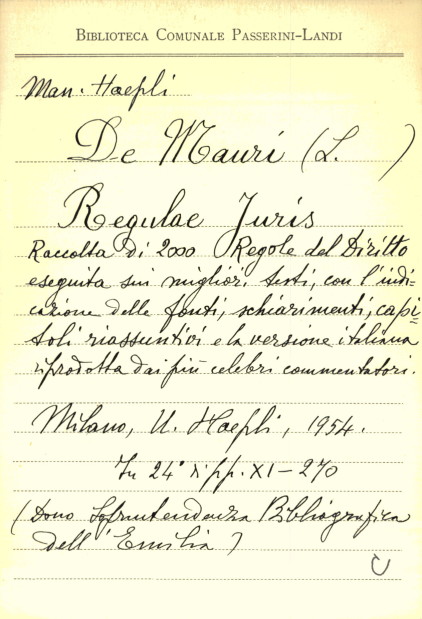 BIBLIOTECA COMUNALE PASSERINI-LANDI
Man. Hoepli
De Mauri (L. )
Regulae Juris
Raccolta di 2000 Regole del Diritto
eseguita sui migliori testi, con l'indi-
cazione delle fonti, schiarimenti, capi=
toli riassuntivi e la versione italiana
riprodotta dai più celebri commentatori.
Milano, U. Hoepli, 1954.
In 24° pp. XI-270
(Dono Soprintendenza Bibliografica
dell'Emilia)
C